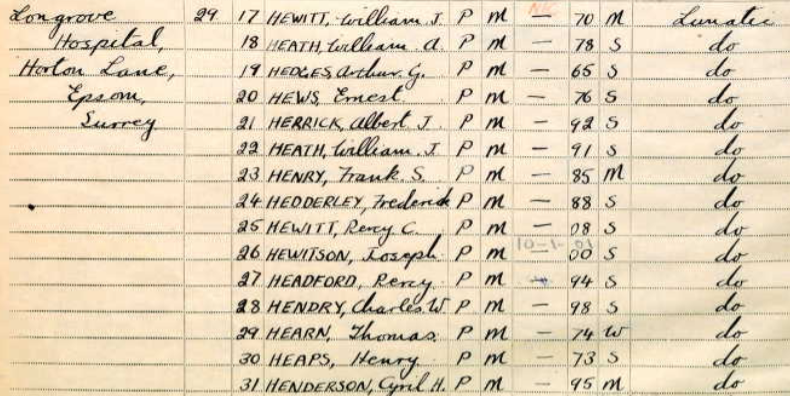 Longrove 29 17 HEWITT, William J. P M — 70 M Lunatic
Hospital, 18 HEATH, William A. P M — 78 S do
Horton Lane, 19 HEDGES, Arthur G. P M — 65 S do
Epsom, 20 HEWS, Ernest P M — 76 S do
Surrey 21 HERRICK, Albert J. P M — 92 S do
22 HEATH, William J. P M — 91 S do
23 HENRY, Frank S. P M — 85 M do
24 HEDDERLEY, Frederick P M — 88 S do
25 HEWITT, Percy C. P M — 08 S do
10-1-01
26 HEWITSON, Joseph P M — 00 S do
27 HEADFORD, Percy P M — 94 S do
28 HENDRY, Charles W. P M — 98 S do
29 HEARN, Thomas P M — 74 W do
30 HEAPS, Henry P M — 73 S do
31 HENDERSON, Cyril H. P M — 95 M do